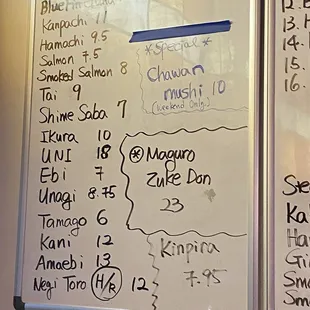 Kanpachi 11
Hamachi 9.5
Salmon 7.5
Smoked Salmon 8
Tai 9
Shime Saba 7
Ikura 10
UNI 18
Ebi 7
Unagi 8.75
Tamago 6
Kani 12
Amaebi 13
Negi Toro H/R 12
*Special*
Chawan
mushi 10
(Weekend Only)
* Maguro
Zuke Don
23
Kinpira
7.95
12.
13.
14.
15.
16.